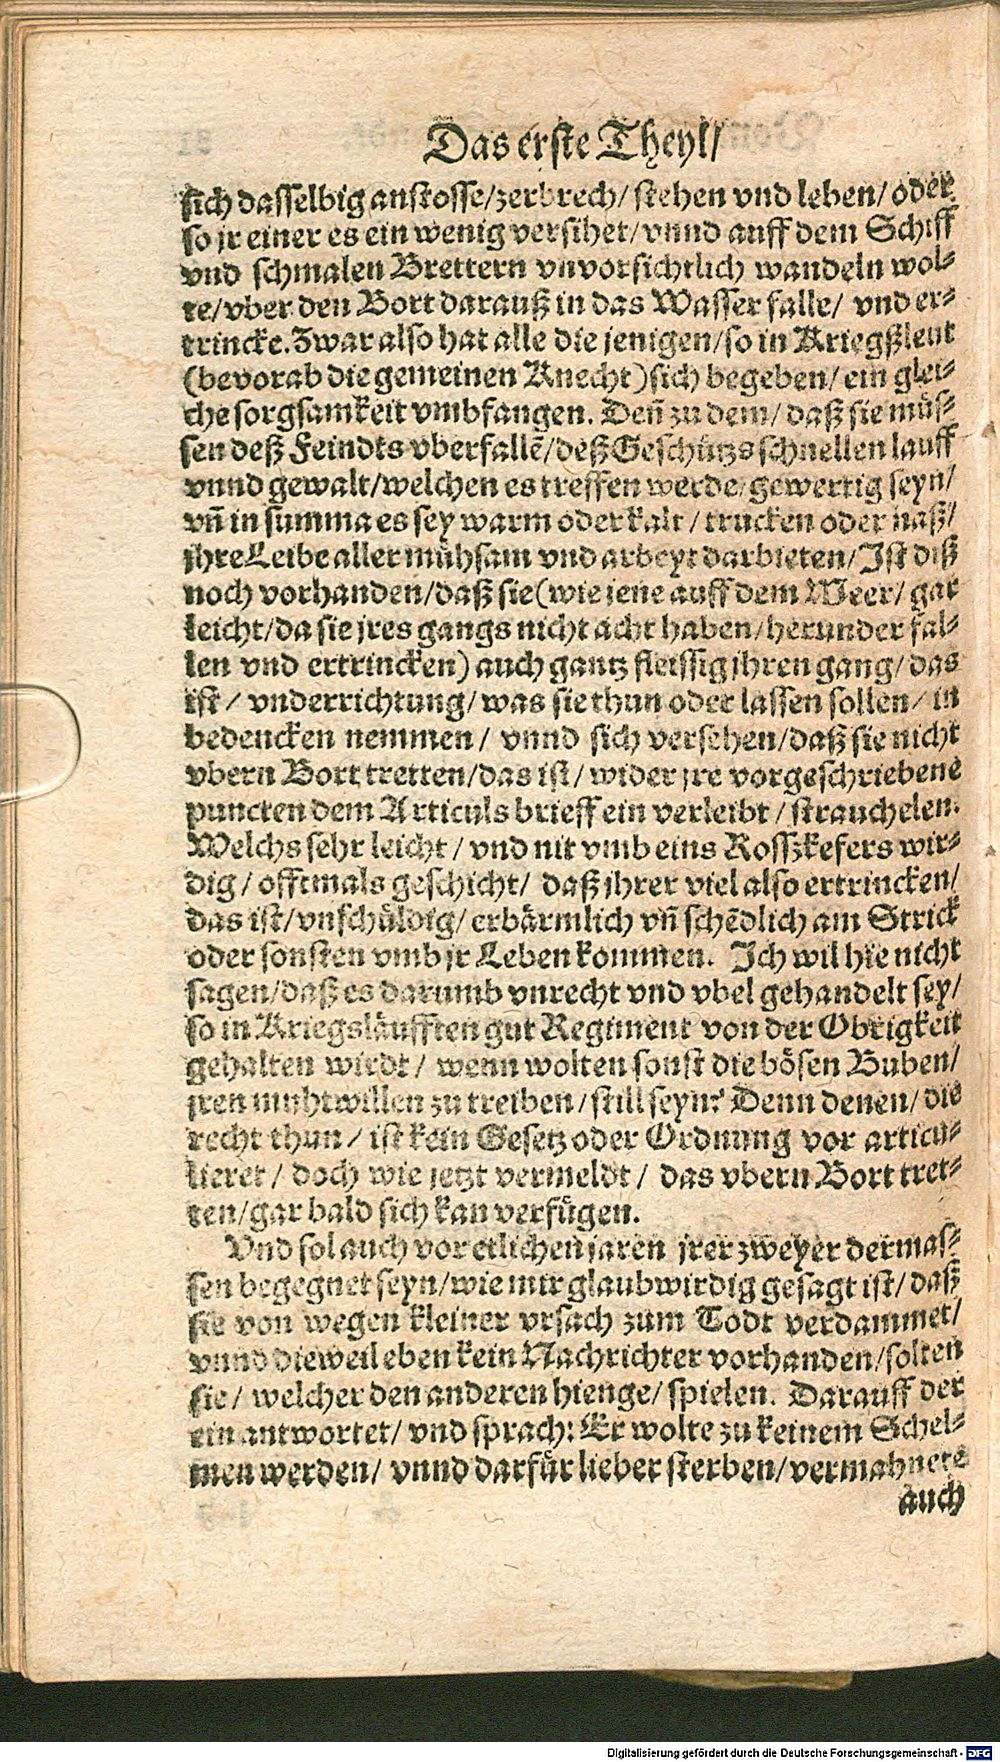 Das erste Theyl/
sich dasselbig anstosse/zerbrech/ stehen vnd leben/ oder
so jr einer es ein wenig versihet/ vnnd auff dem Schiff
vnd schmalen Brettern vnvorsichtlich wandeln wol-
te/vber den Bort darauß in das Wasser falle/ vnd er-
trincke. Zwar also hat alle die jenigen/so in Kriegßleut
(bevorab die gemeinen Knecht) sich begeben/ ein glei-
che sorgsamkeit vmbfangen. Deñ zu dem/ daß sie müs-
sen deß Feindts vberfallẽ/deß Geschützs schnellen lauff
vnnd gewalt/welchen es treffen werde/ gewertig seyn/
vñ in summa es sey warm oder kalt / trucken oder naß/
jhre Leibe aller mühsam vnd arbeyt darbieten/ Ist diß
noch vorhanden/daß sie (wie jene auff dem Meer/ gar
leicht/da sie jres gangs nicht acht haben/herunder fal-
len vnd ertrincken) auch gantz fleissig jhren gang/ das
ist / vnderrichtung/ was sie thun oder lassen sollen/ in
bedencken nemmen / vnnd sich versehen/daß sie nicht
vbern Bort tretten/das ist / wider jre vorgeschriebene
puncten dem Articuls brieff ein verleibt / strauchelen.
Welchs sehr leicht / vnd nit vmb eins Rosszkefers wir-
dig / offtmals geschicht/ daß jhrer viel also ertrincken/
das ist/vnschüldig/ erbärmlich vñ schẽdlich am Strick
oder sonsten vmb jr Leben kommen. Ich wil hie nicht
sagen/daß es darumb vnrecht vnd vbel gehandelt sey/
so in Kriegsläufften gut Regiment von der Obrigkeit
gehalten wirdt / wenn wolten sonst die bösen Buben/
jren muhtwillen zu treiben / still seyn? Denn denen/ die
recht thun / ist kein Gesetz oder Ordnung vor articu-
lieret / doch wie jetzt vermeldt / das vbern Bort tret-
ten/gar bald sich kan verfügen.
Vnd sol auch vor etlichen jaren jrer zweyer dermas-
sen begegnet seyn/wie mir glaubwirdig gesagt ist/ daß
sie von wegen kleiner vrsach zum Todt verdammet/
vnnd dieweil eben kein Nachrichter vorhanden/solten
sie/ welcher den anderen hienge/ spielen. Darauff der
ein antwortet/ vnd sprach: Er wolte zu keinem Schel-
men werden/ vnnd darfür lieber sterben/ vermahnete
auch
Digitalisierung gefördert durch die Deutsche Forschungsgemeinschaft - DFG